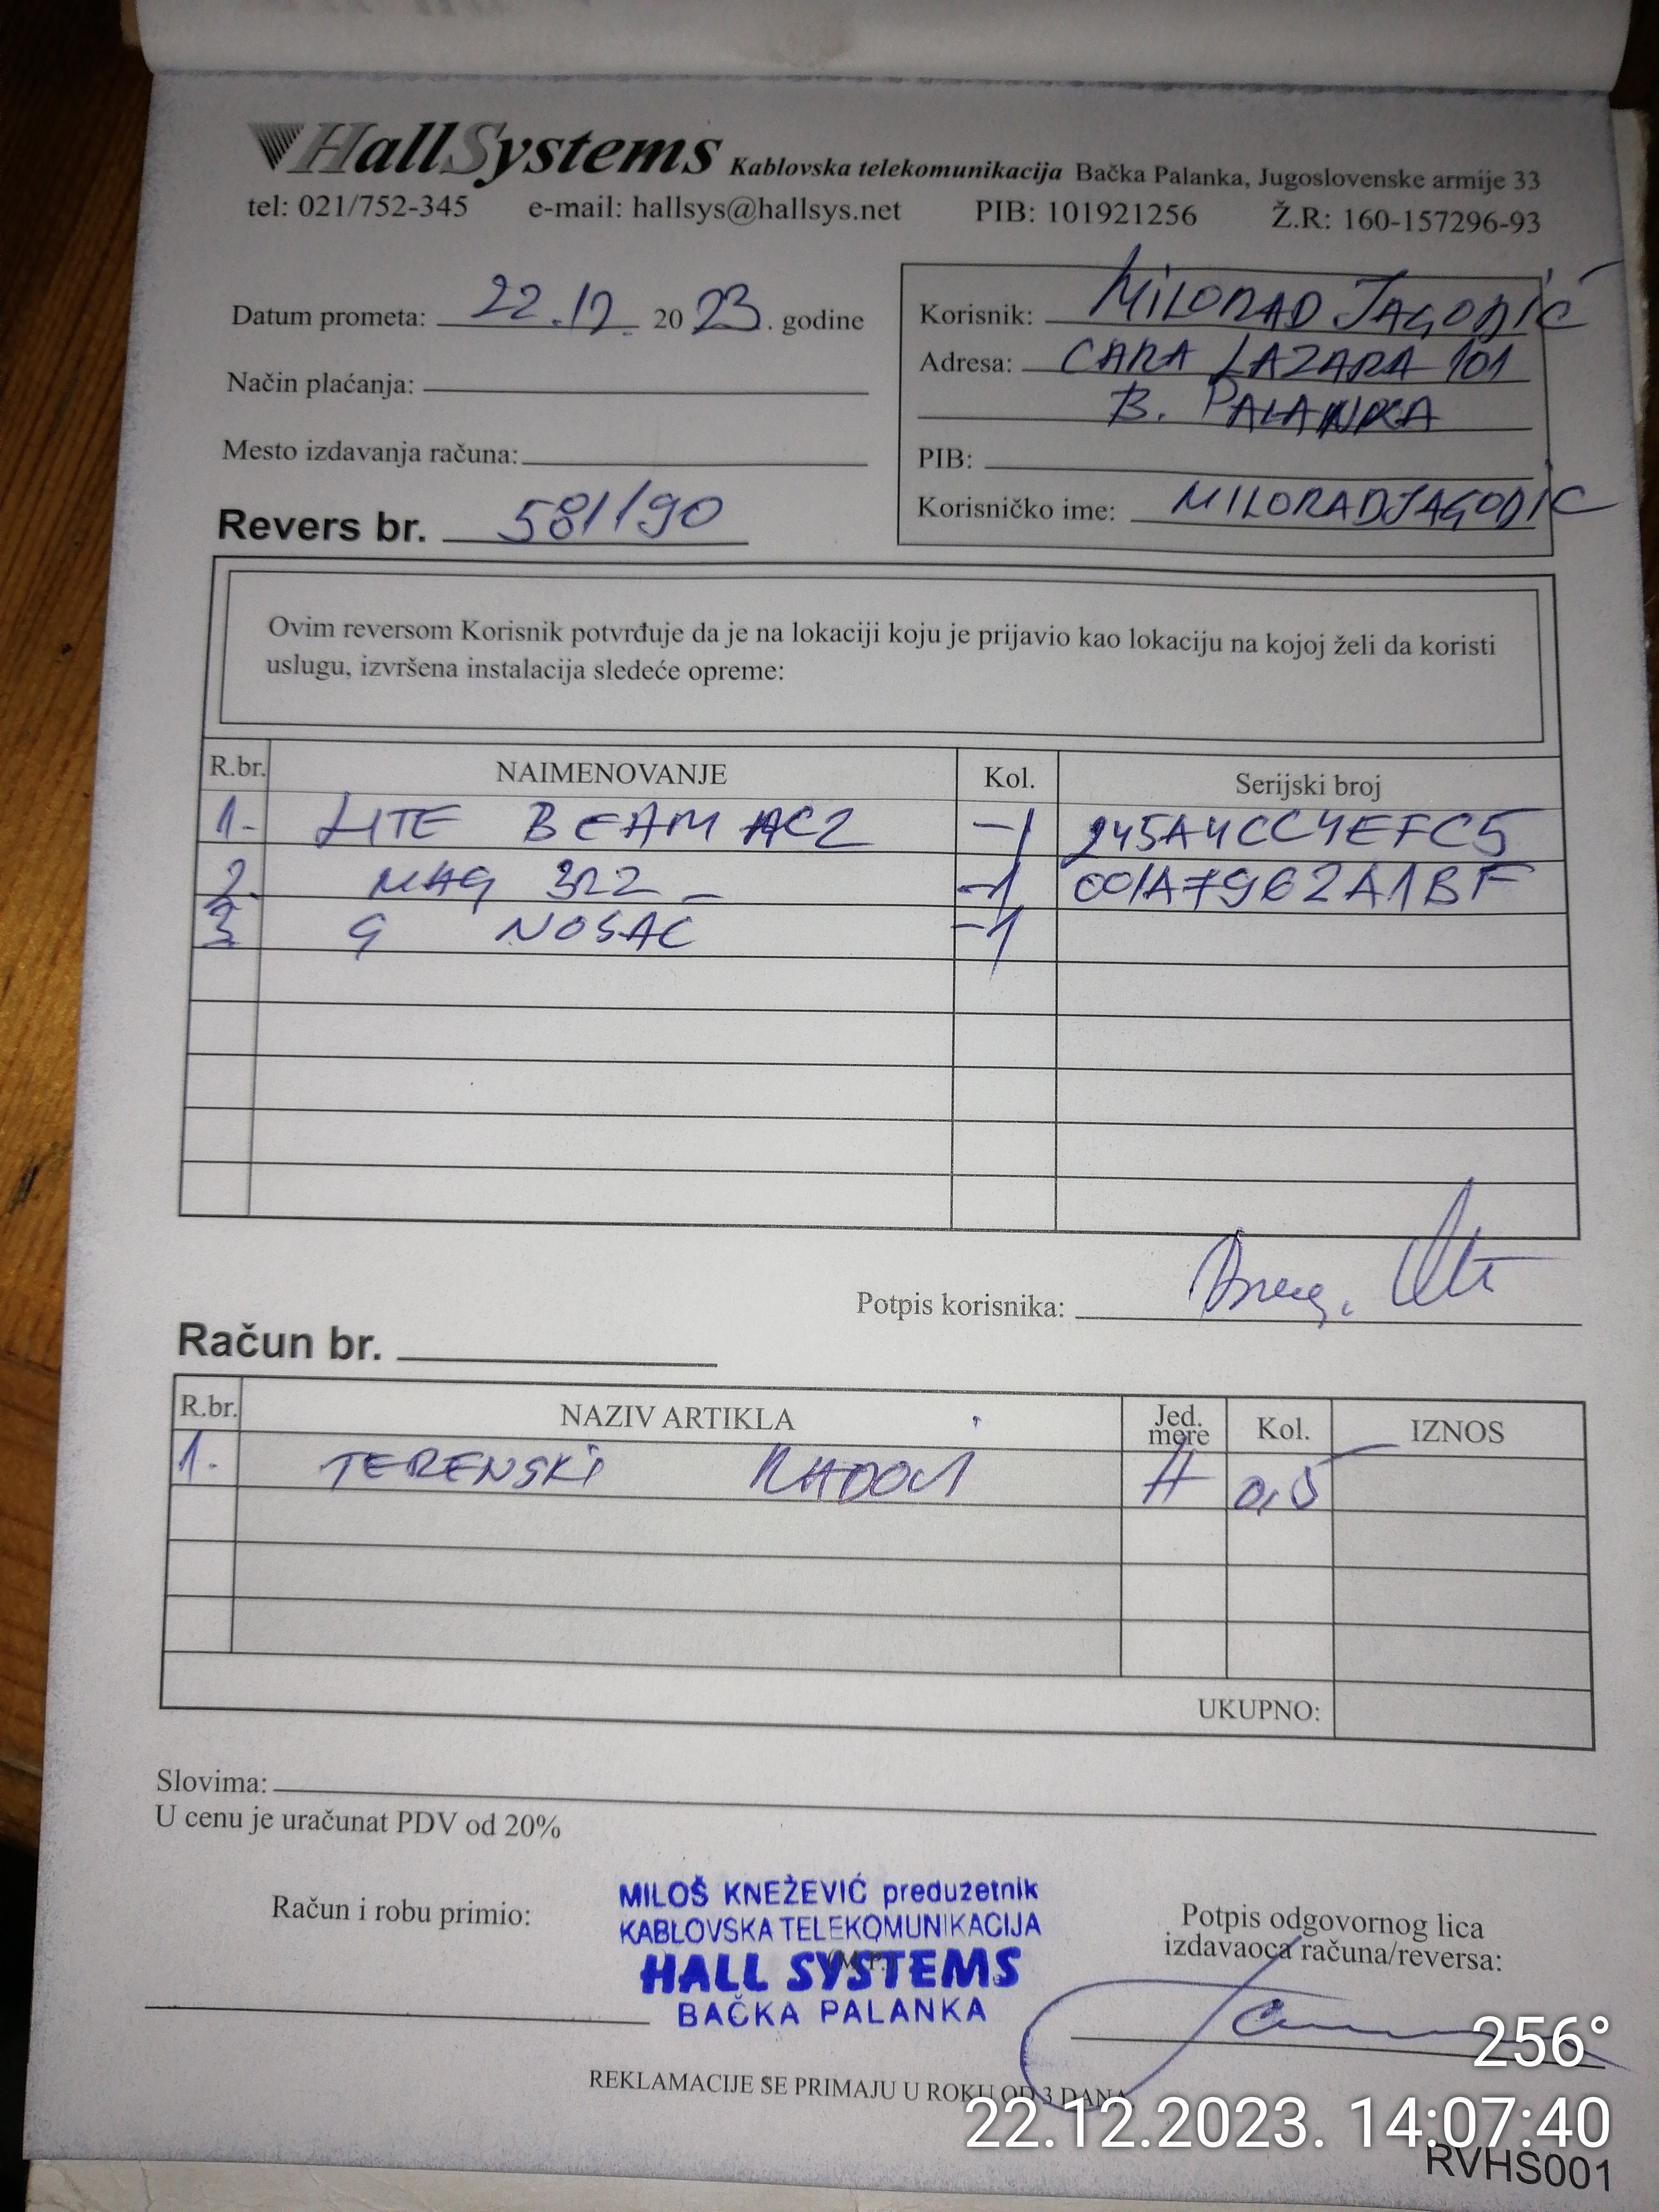 HallSystems Kablovska telekomunikacija Bačka Palanka, Jugoslovenske armije 33
tel: 021/752-345 e-mail: hallsys@hallsys.net PIB: 101921256 Ž.R: 160-157296-93
Datum prometa: 22.12. 2023. godine
Način plaćanja:
Mesto izdavanja računa:
Revers br. 581/190
Korisnik: MILORAD JAGODIĆ
Adresa: CARA LAZARA 101
B. PALANKA
PIB:
Korisničko ime: MILORADJAGODIC
Ovim reversom Korisnik potvrđuje da je na lokaciji koju je prijavio kao lokaciju na kojoj želi da koristi
uslugu, izvršena instalacija sledeće opreme:
R.br. NAIMENOVANJE Kol. Serijski broj
1- LITE BEAM AC2 -1 245A4CC4EFC5
2. MAG 322 - -1 001A7962A1BF
3 G NOSAC -1
Potpis korisnika:
Račun br.
R.br. NAZIV ARTIKLA Jed. mere Kol. IZNOS
1. TERENSKI RADOVI H 0,5
UKUPNO:
Slovima:
U cenu je uračunat PDV od 20%
Račun i robu primio:
MILOŠ KNEŽEVIĆ preduzetnik
KABLOVSKA TELEKOMUNIKACIJA
(M.P.)
HALL SYSTEMS
BAČKA PALANKA
Potpis odgovornog lica
izdavaoca računa/reversa:
REKLAMACIJE SE PRIMAJU U ROKU OD 3 DANA
256°
22.12.2023. 14:07:40
RVHS001